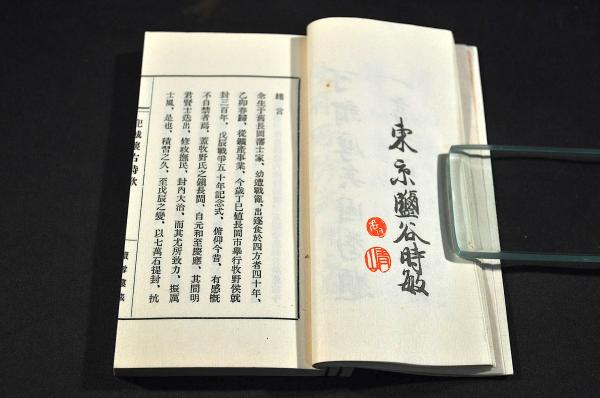 東京鹽谷時敏
緒言
余生于舊長岡藩士家、幼遭戰亂、出逐食於四方者四十年、
乙卯春歸、從鑛產事業、今歲丁巳値長岡市舉行牧野侯就
封三百年、戊辰戰爭五十年記念式、俯仰今昔、有感慨
不自禁者焉、蓋牧野氏之鎭長岡、自元和至慶應、其間明
君賢士迭出、修政撫民、封內大治、而其尤所致力、振厲
士風、是也、積習之久、至戊辰之變、以七萬石提封、抗
懷古詩歌